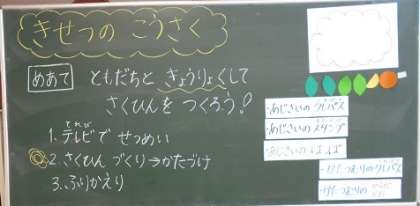 きせつの こうさく
めあて ともだちと きょうりょくして
さくひんを つくろう!
てれび
1. テレビで せつめい
2. さくひん づくり→かたづけ
3. ふりかえり
・あじさいの クレパス
・あじさいの スタンプ
あじさいの
・かたつむりの クレパス
・かたつむりの